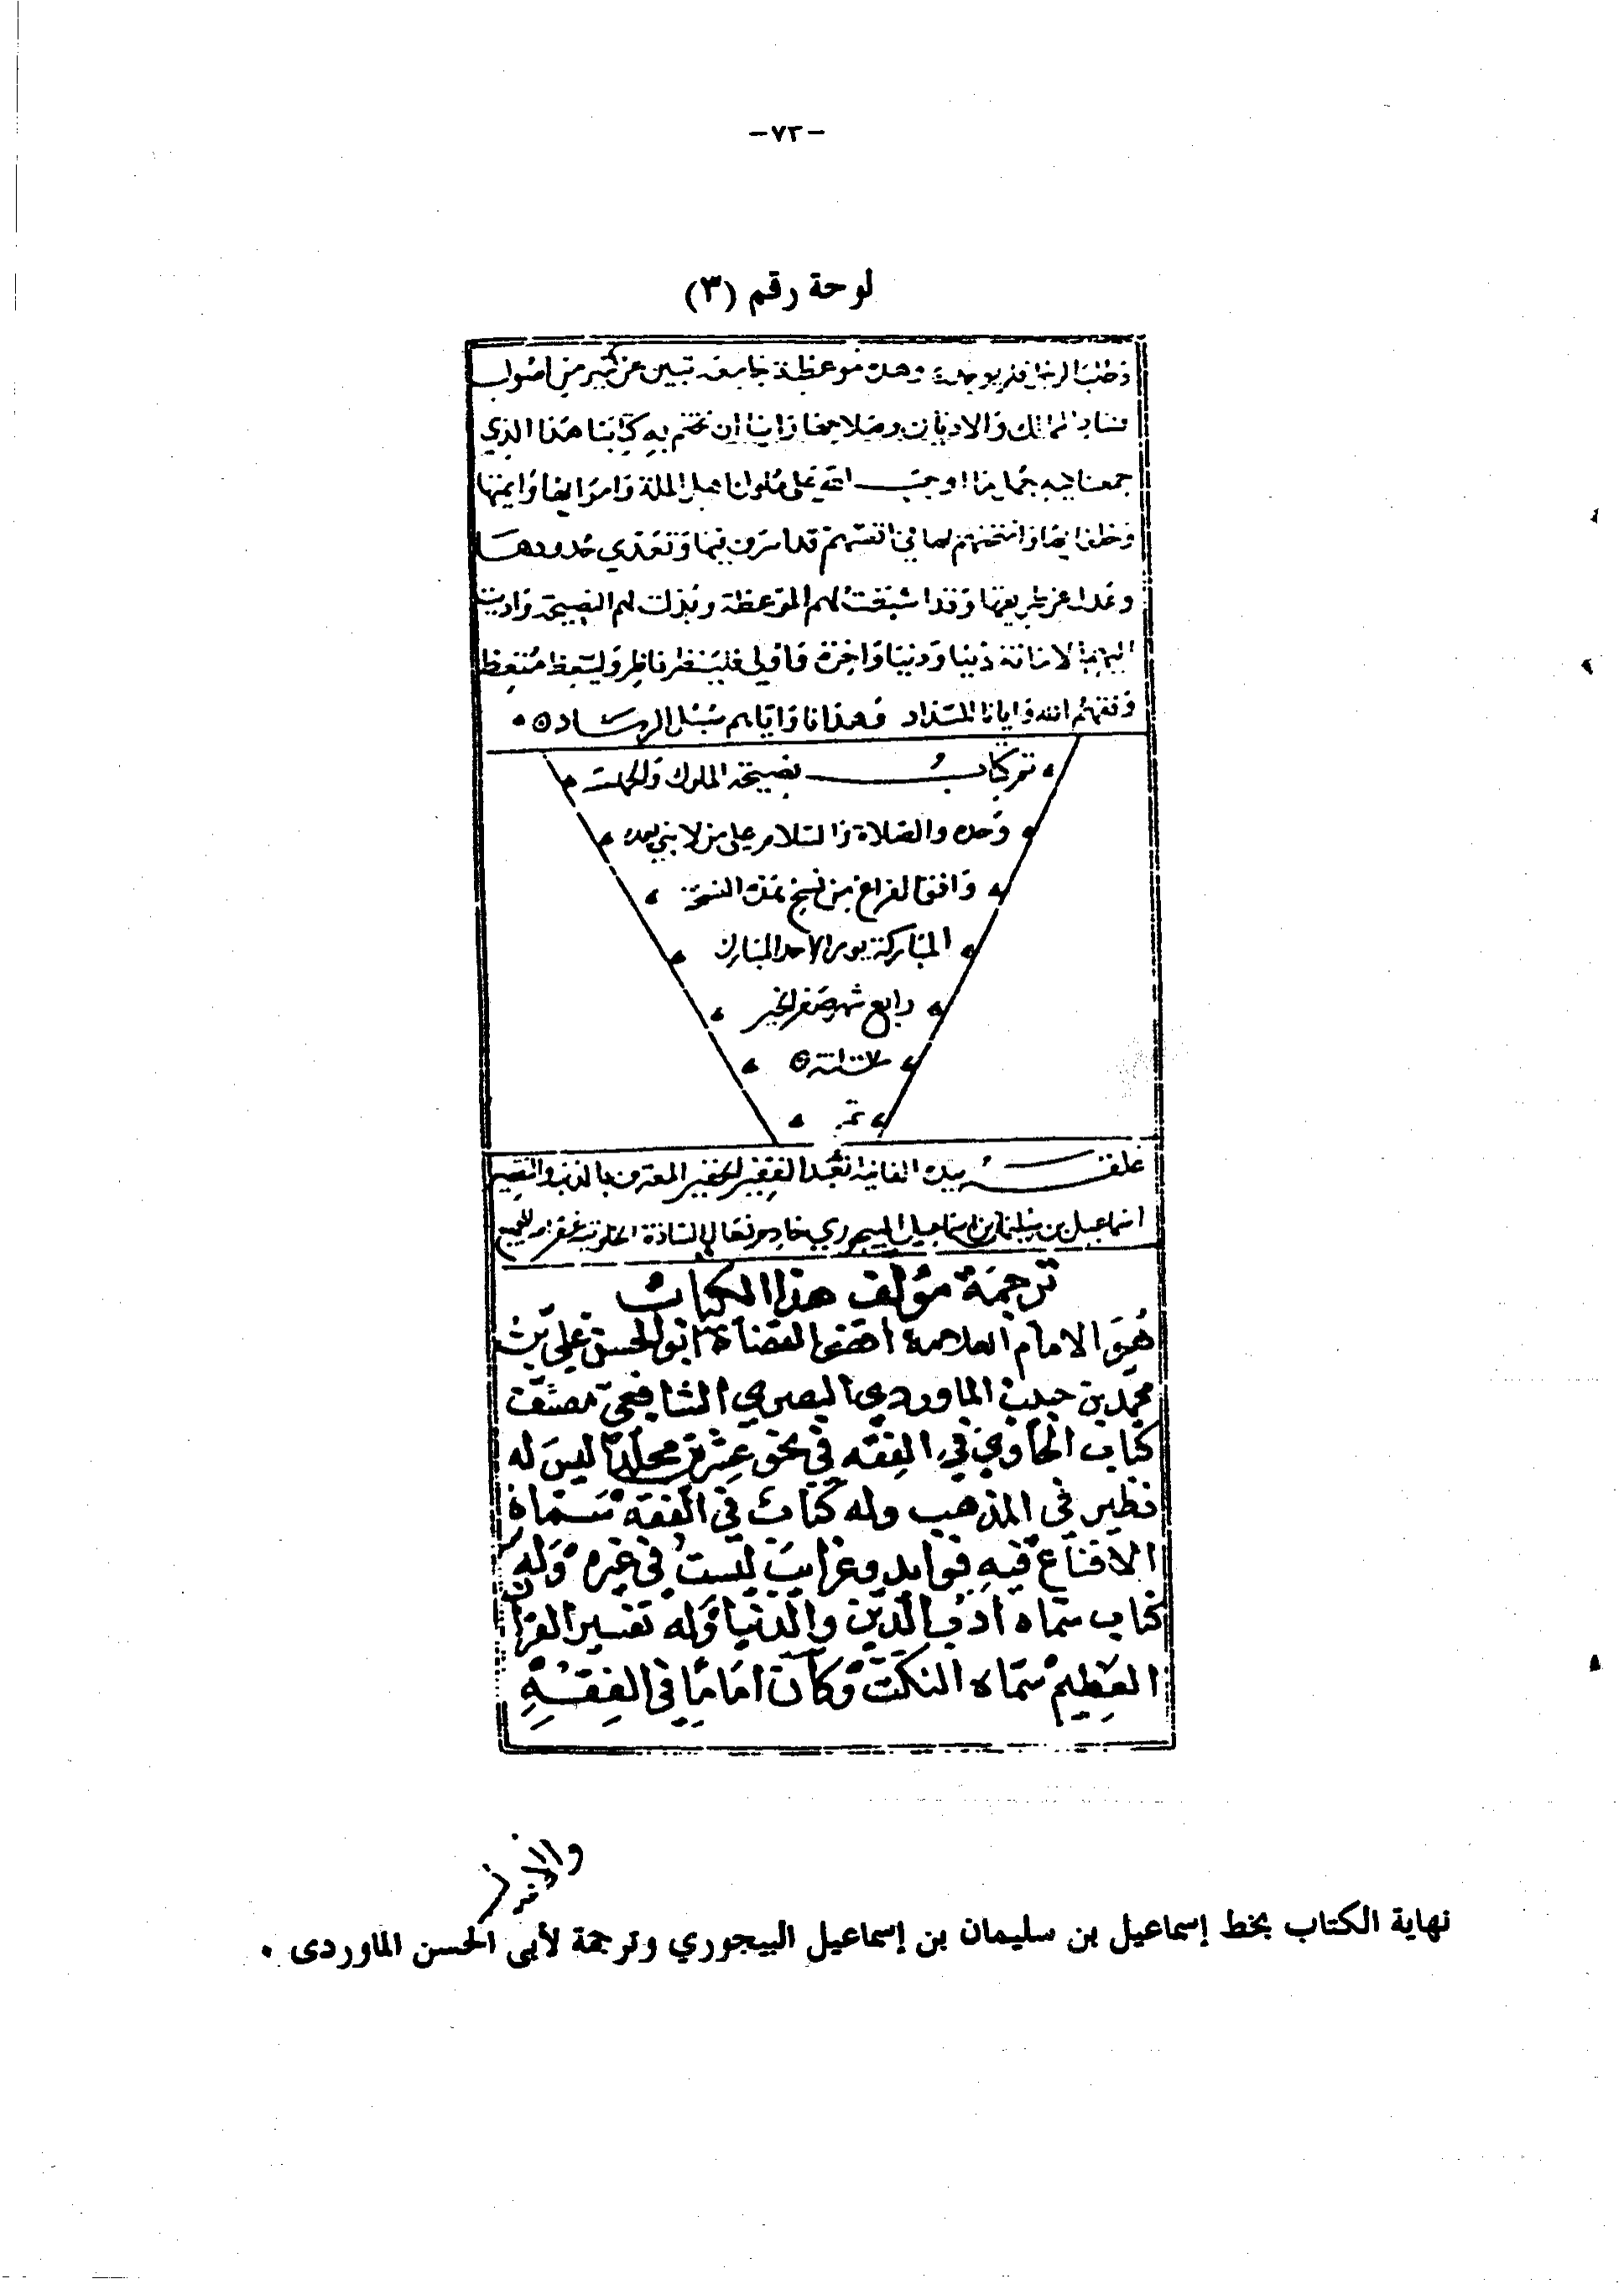 -٧٣-
لوحة رقم (٣)
وطلب الرخا فلم يوجد وهذه موعظة جامعة تبين عن كثير من اصول
فساد الممالك والاديان وصلاحها راينا ان نختم به كتابنا هذا الذي
جمعنا فيه جمل ما اوجب الله على ملوك اهل الملة وامرايها وايمتها
وخلفايها
وعدل عن طريقتها وقد اشبعت لهم الموعظة وبذلت لهم النصيحة واديت
اليهم الامانة دينا ودنيا واخرة فلينظر ناظر وليتعظ متعظ
وفقهم الله وايانا للسداد وهدانا واياهم سبل الرشاد
تم كتاب نصيحة الملوك والحمد لله
وحده والصلاة والسلام على من لا نبي بعده
وافق الفراغ من نسخ هذه النسخة
المباركة يوم الاحد المبارك
رابع شهر صفر الخير
تم
علقه بيده الفانية العبد الفقير الحقير المعترف بالذنب والتقصير
اسماعيل بن سليمان بن اسماعيل البيجوري خادم نعال السادة الخلوتية غفر الله للجميع
ترجمة مؤلف هذا الكتاب
هو الامام العلامة اقضى القضاة ابو الحسن علي بن
محمد بن حبيب الماوردي البصري الشافعي مصنف
كتاب الحاوي في الفقه في نحو عشرين مجلدا ليس له
نظير في المذهب وله كتاب في الفقه سماه
الاقناع فيه فوايد وغرايب ليست في غيره وله
كتاب سماه ادب الدين والدنيا وله تفسير القران
العظيم سماه النكت وكان اماما في الفقه
نهاية الكتاب بخط إسماعيل بن سليمان بن إسماعيل البيجوري وترجمة لأبى الحسن الماوردى .